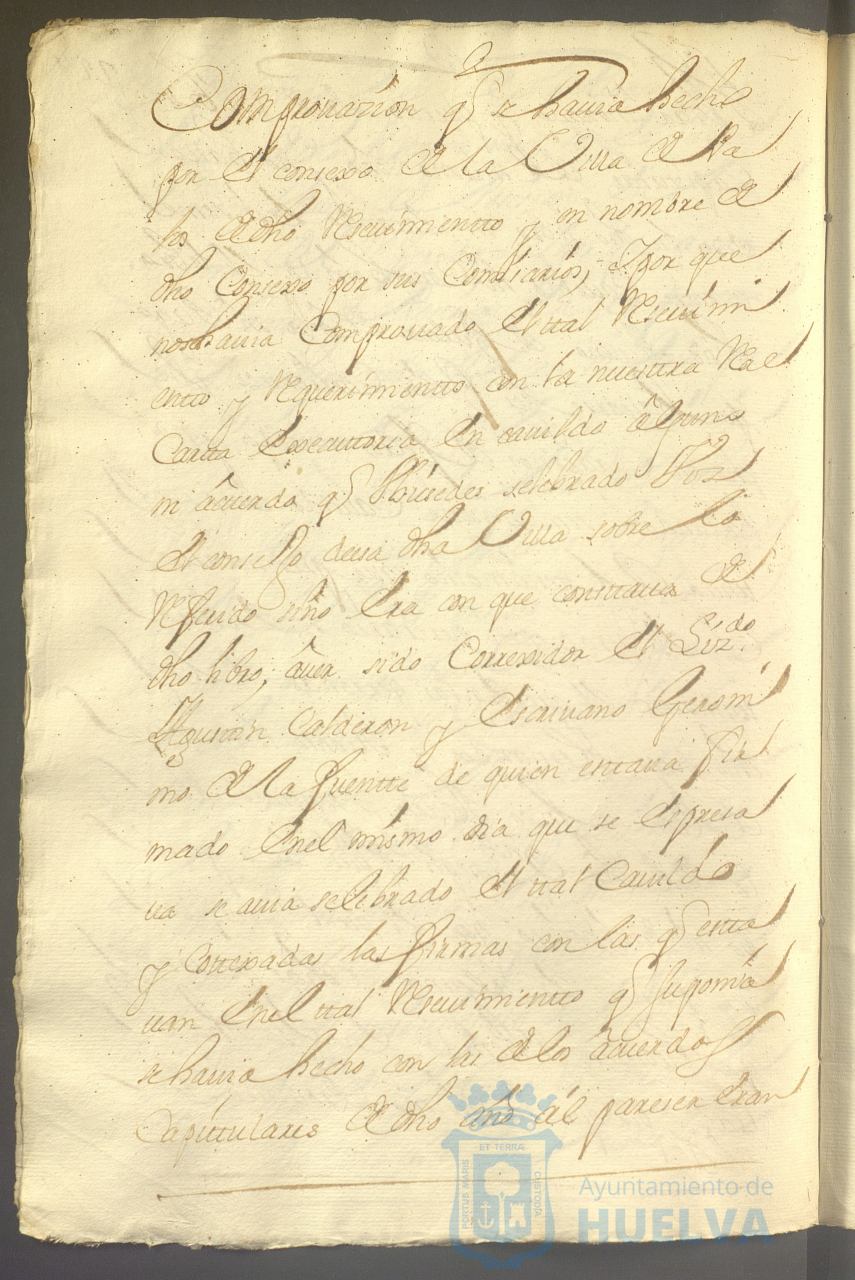 Comprouazion q̃ se hauia hecho
por el consexo de la Villa de Pa
los de dho Reseuimientto y en nombre de
dho Consexo por sus Comisarios, y por que
nose hauia Comprouado el ttal Reseuimi
entto y Requerimientto con la nuestra Rae
Cartta executtoria en cauildo âlguno
ni âcuerdo q̃ selebrado Por
el consejo desa dha Villa sobre lo
Referido sino era con que consttaua de
dho libro, âuer sido Correxidor el Liz.do
Agustin Calderon y escriuano Geroni
mo de la fuentte de quien esttaua fir
mado en el mismo dia que se espresa
ua se auia selebrado el ttal Cauildo
y cottexadas las firmas con las q̃ estta
uan en el ttal Reseuimientto q̃ suponia
se hauia hecho con las de los âcuerdos
Capittulares de dho año âl pareser eran
ET TERRÆ
PORTUS MARIS
CUSTODIA
Ayuntamiento de
HUELVA